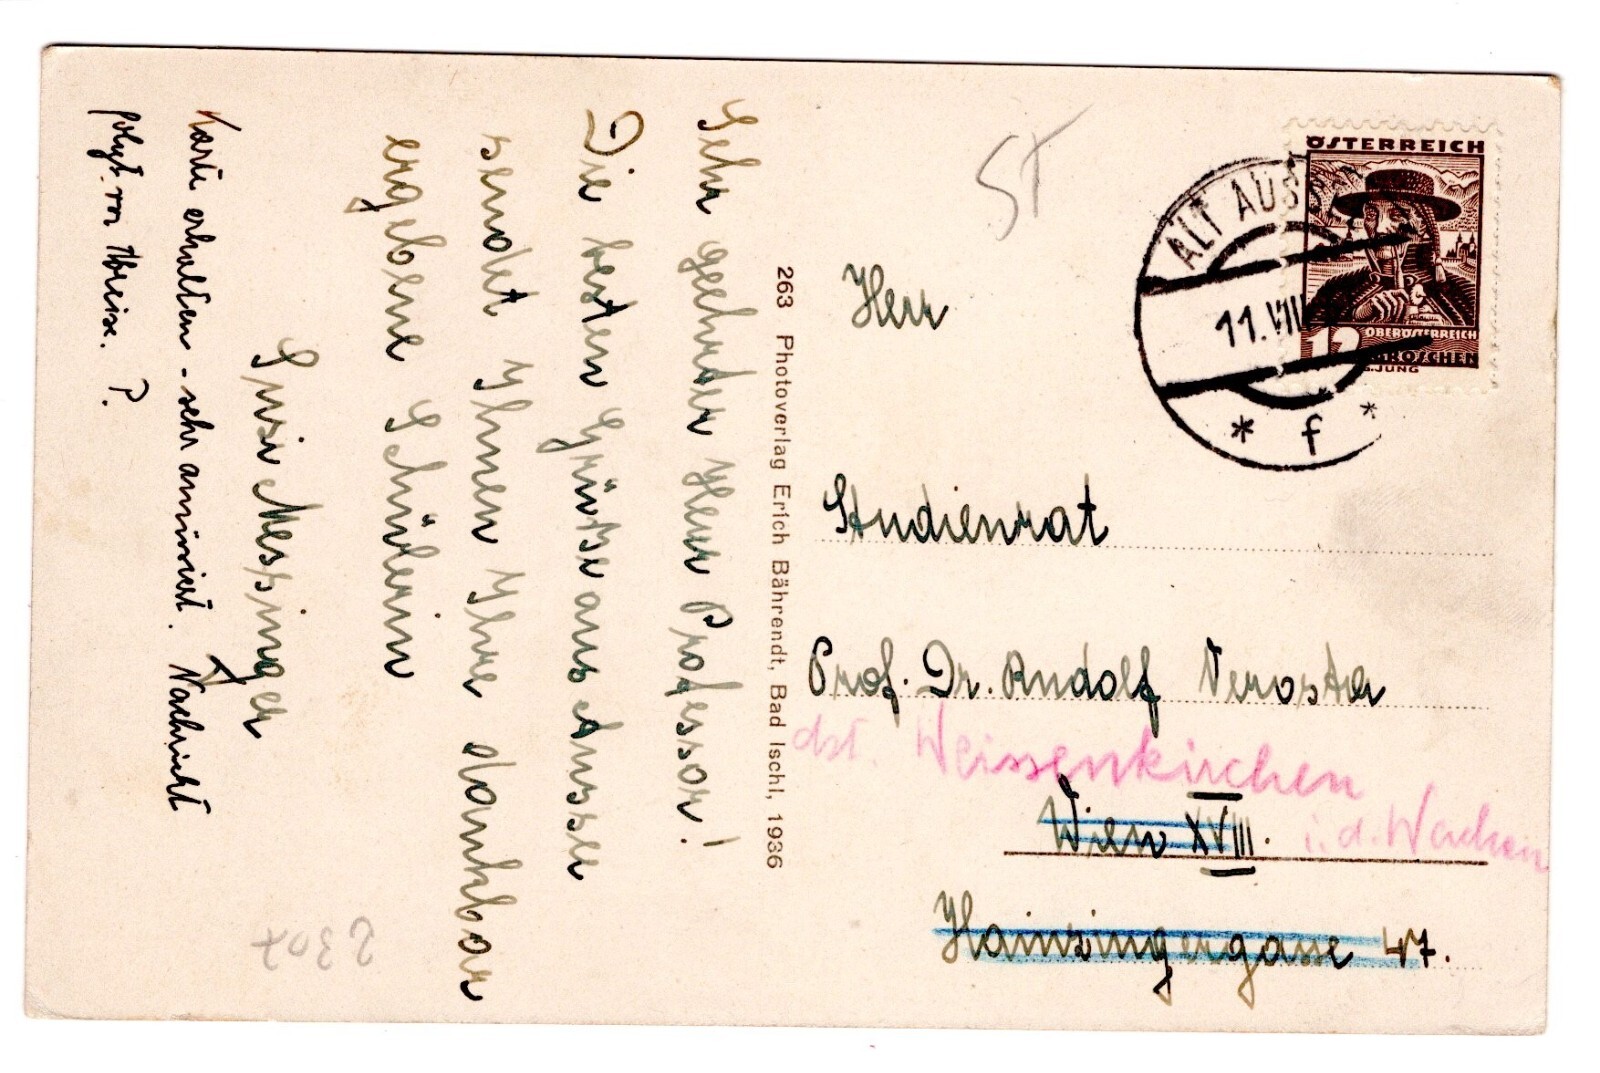 Sehr geehrter Herr Professor!
Die besten Grüsse aus Aussee
sendet Ihnen Ihre dankbar
ergebene Schülerin
Susi Messinger
Karte erhalten - sehr amüsiert. Nachricht
folgt Abreise. P.
263 Photoverlag Erich Bährendt, Bad Ischl, 1936
ST
ÖSTERREICH
OBERÖSTERREICH
12 GROSCHEN
G.JUNG
ALT AUSSEE
11.VIII
* f *
Herr
Studienrat
Prof. Dr. Rudolf
dzt. Weissenkirchen
Wien XVIII. i. d. Wachau
Hainzingergasse 47.
2307